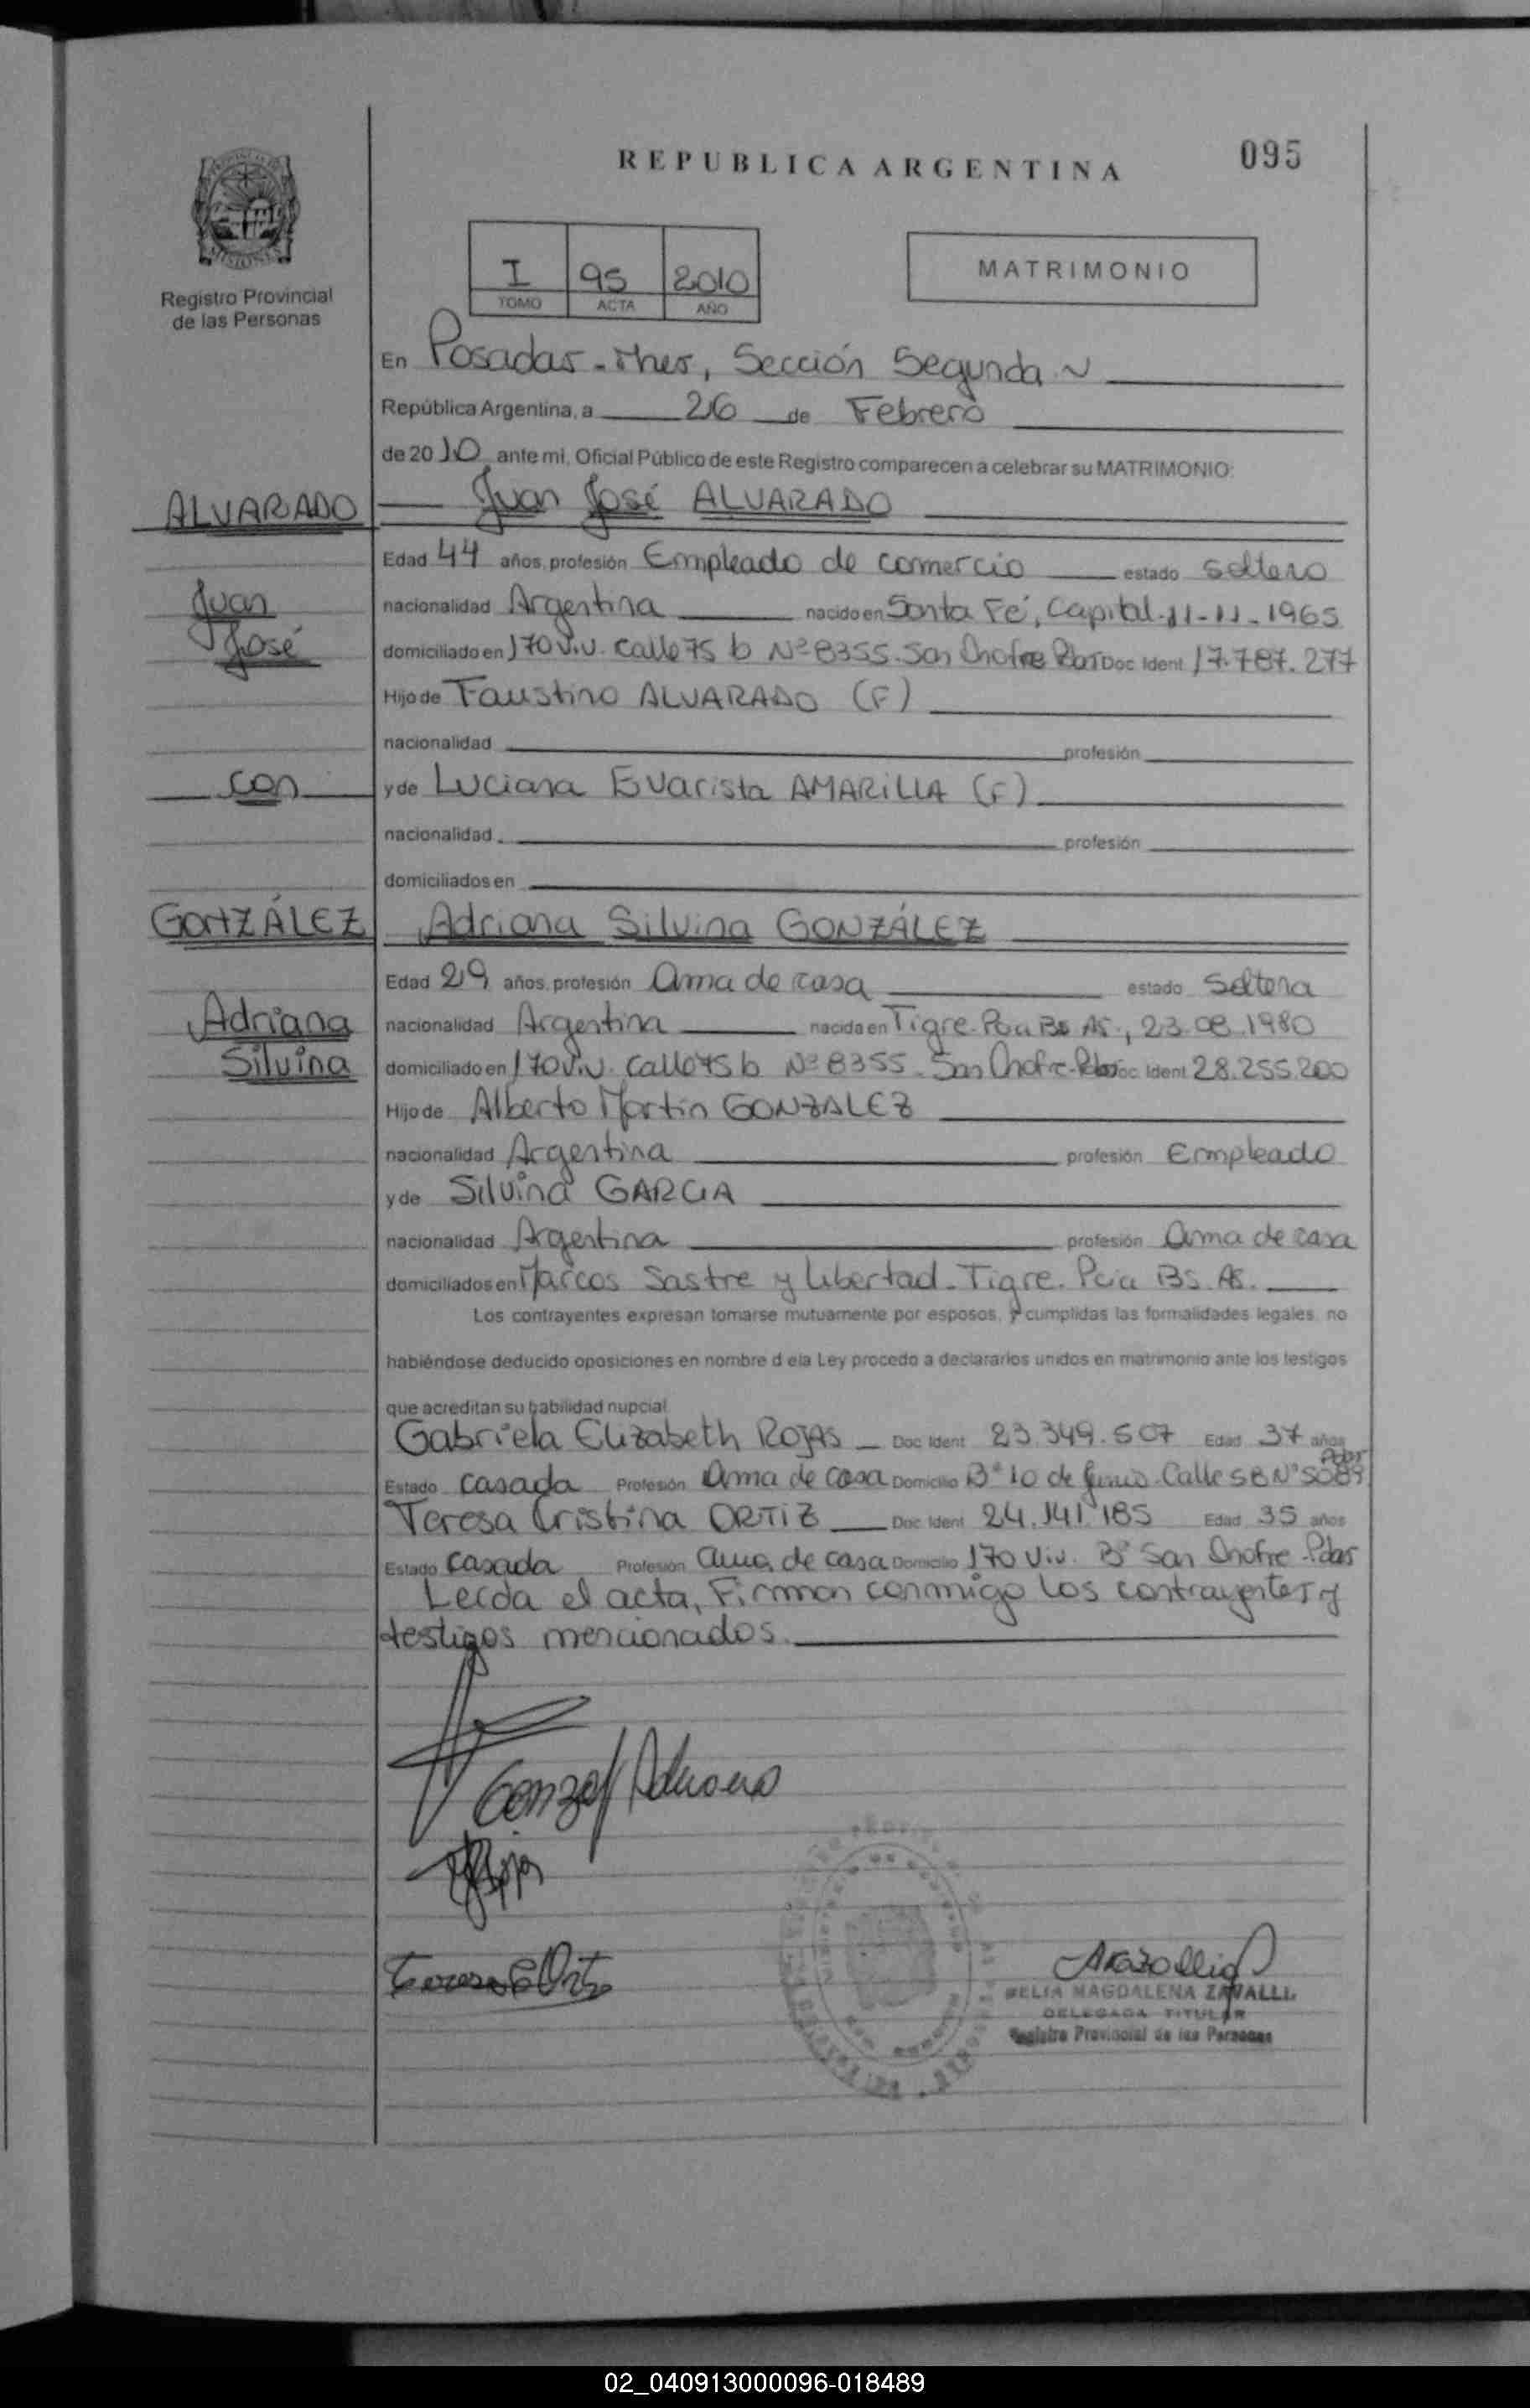 REPUBLICA ARGENTINA
095
MISIONES
Registro Provincial
de las Personas
I 95 2010
TOMO ACTA AÑO
MATRIMONIO
En Posadas - Mnes, Sección Segunda
República Argentina, a 26 de Febrero
de 2010 ante mi, Oficial Público de este Registro comparecen a celebrar su MATRIMONIO:
ALVARADO
Juan José ALVARADO
Edad 44 años, profesión Empleado de comercio estado soltero
Juan
José
nacionalidad Argentina nacido en Santa Fé, Capital. 11-11-1965
domiciliado en 170 Viv. calle 75 b Nº 8355. San Onofre Pdas Doc Ident 17.787.277
Hijo de Faustino ALVARADO (F)
nacionalidad profesión
con
y de Luciana Evarista AMARILLA (F)
nacionalidad profesión
domiciliados en
GONZÁLEZ
Adriana Silvina GONZÁLEZ
Edad 29 años, profesión Ama de casa estado Soltera
Adriana
Silvina
nacionalidad Argentina nacida en Tigre. Pcia Bs As., 23.08.1980
domiciliado en 170 Viv. calle 75 b Nº 8355. San Onofre-Pdas Doc Ident 28.255.200
Hijo de Alberto Martín GONZALEZ
nacionalidad Argentina profesión Empleado
y de Silvina GARCIA
nacionalidad Argentina profesión Ama de casa
domiciliados en Marcos Sastre y Libertad - Tigre. Pcia Bs. As.
Los contrayentes expresan tomarse mutuamente por esposos, y cumplidas las formalidades legales, no
habiéndose deducido oposiciones en nombre d ela Ley procedo a declararlos unidos en matrimonio ante los testigos
que acreditan su habilidad nupcial
Gabriela Elizabeth ROJAS Doc Ident 23.349.507 Edad 37 años
Estado casada Profesión Ama de casa Domicilio Bº 10 de Junio - Calle 58 Nº 5089 Pdas
Teresa Cristina ORTIZ Doc Ident 24.141.185 Edad 35 años
Estado casada Profesión Ama de casa Domicilio 170 Viv. Bº San Onofre - Pdas
Leída el acta, Firman conmigo los contrayentes y
testigos mencionados.
Gonzal Adriana
Rojas
Teresa C Ortiz
DELIA MAGDALENA ZAVALLI
DELEGADA TITULAR
Registro Provincial de las Personas
02_040913000096-018489